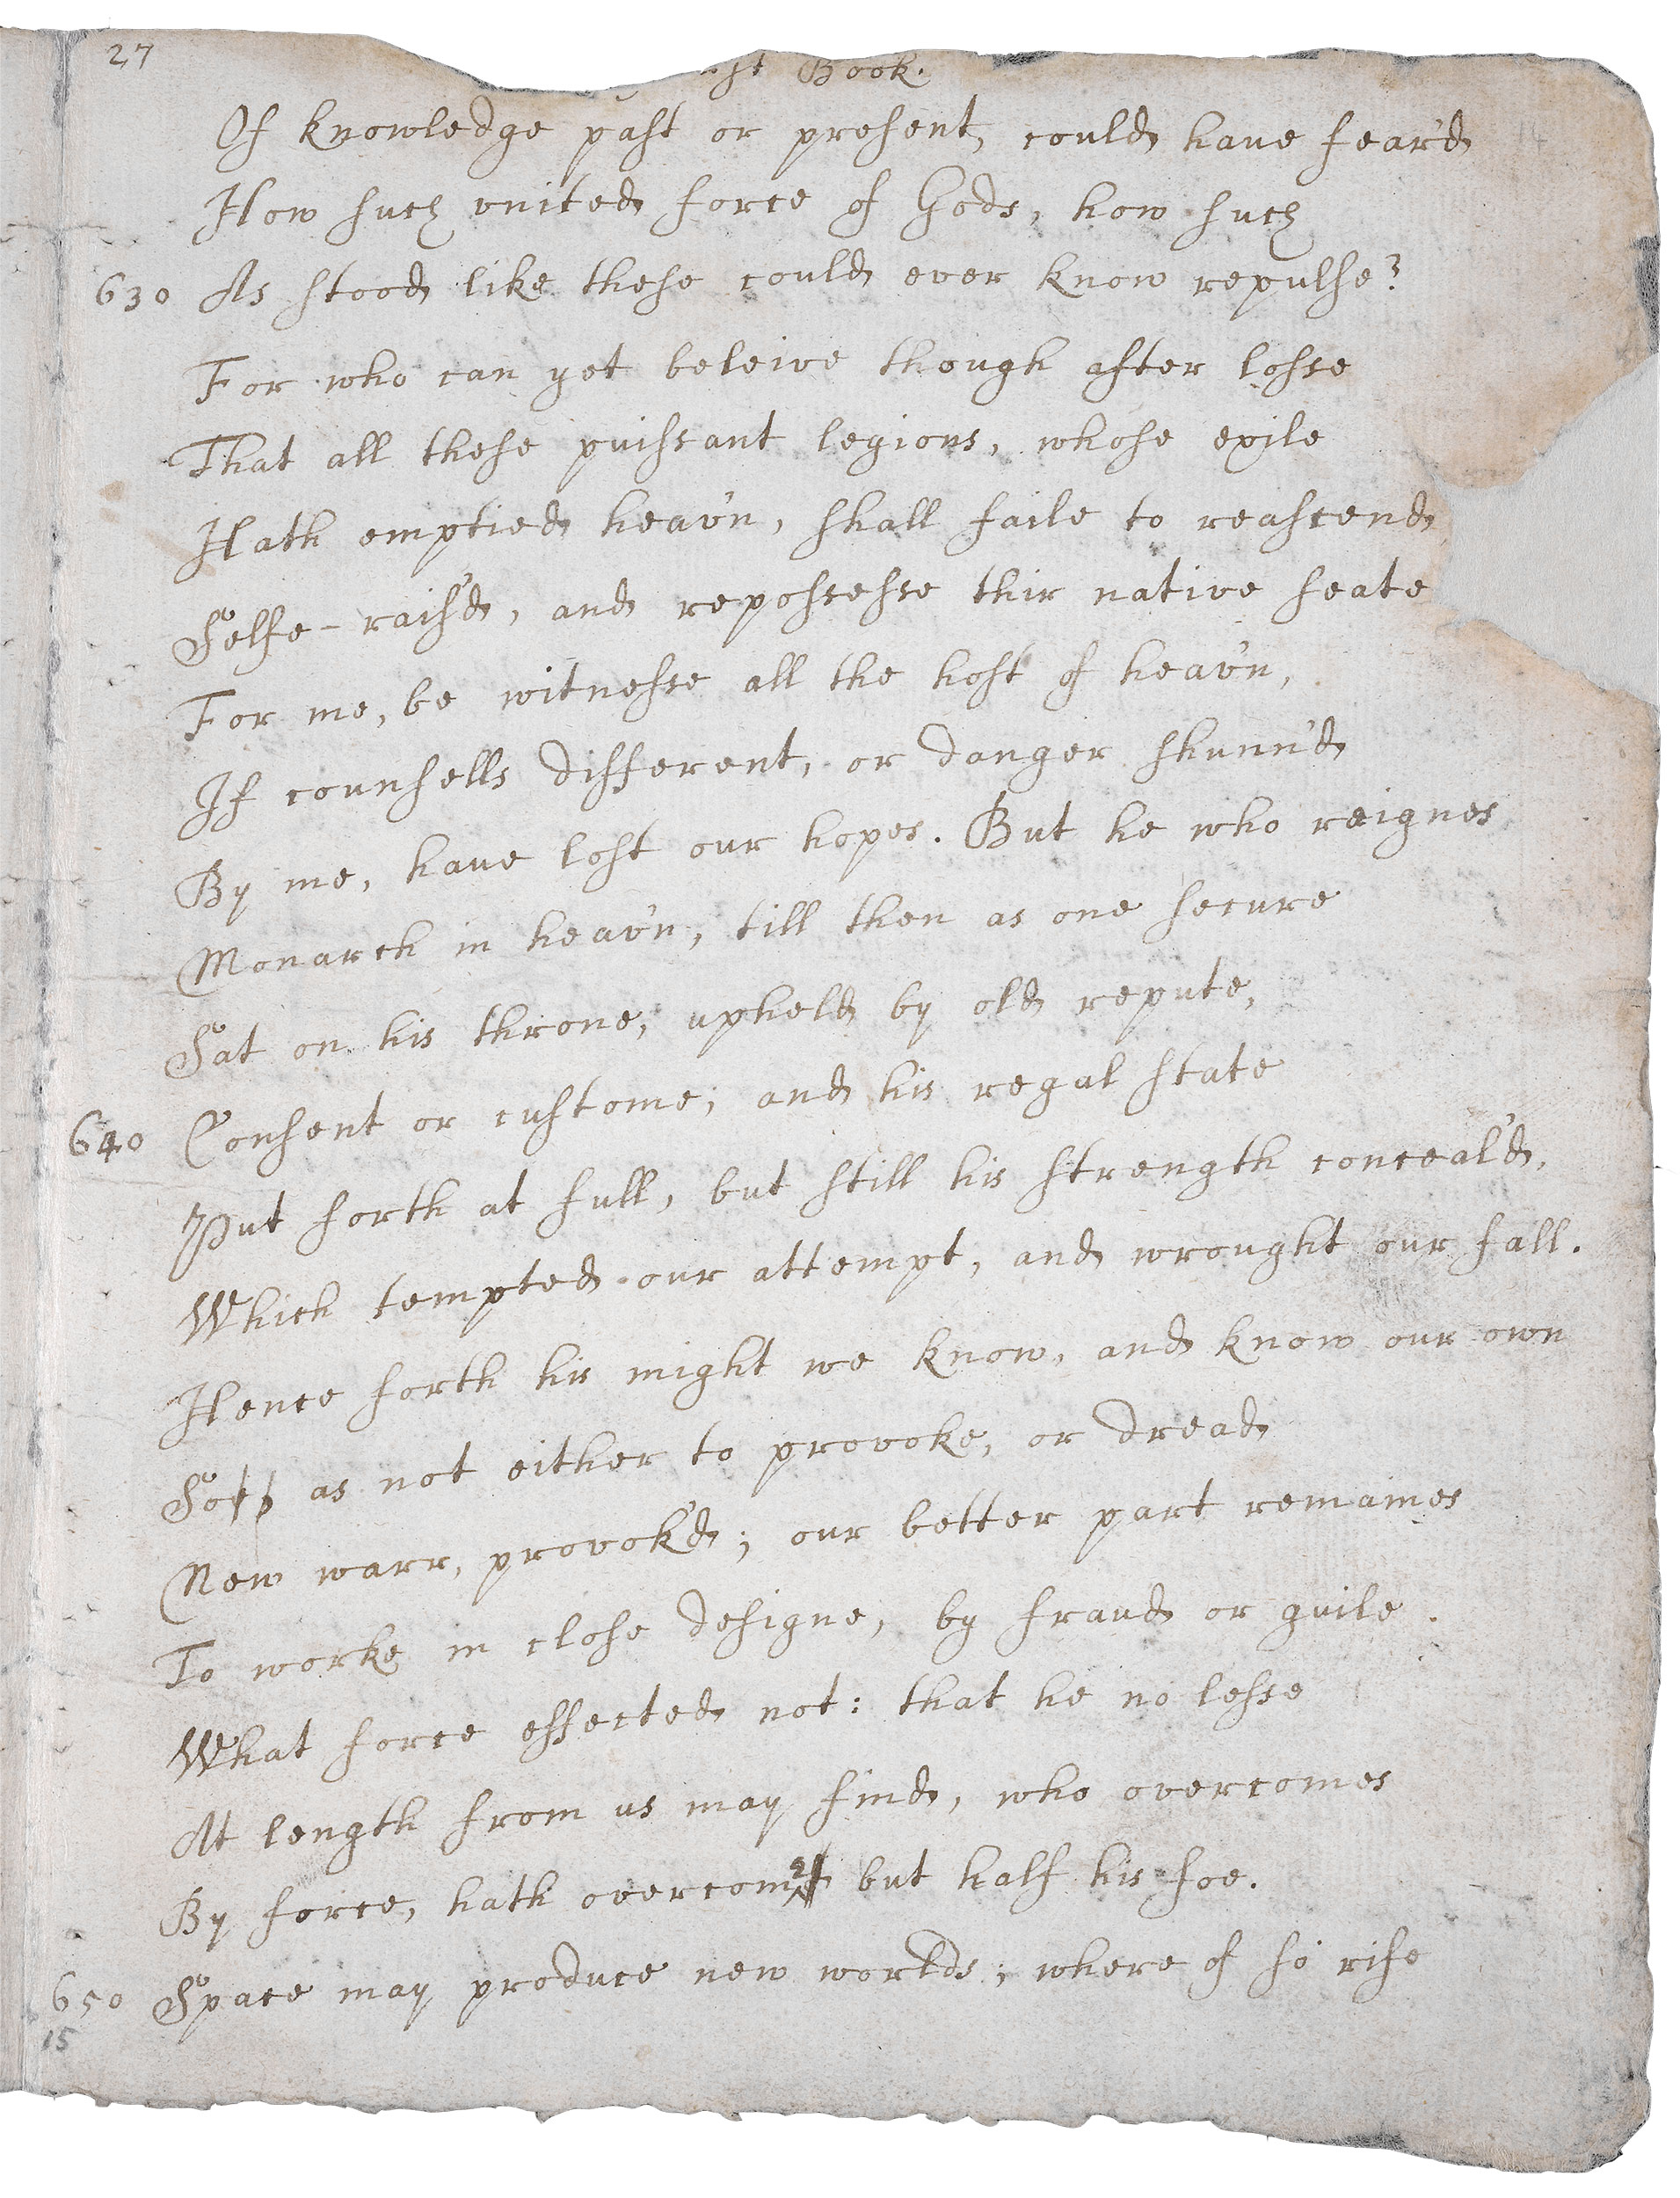 27
st Book.
Of knowledge past or present, could have fear'd
14
How such vnited force of Gods, how such
630 As stood like these could ever know repulse?
For who can yet beleive though after losse
That all these puissant legions, whose exile
Hath emptied heav'n, shall faile to reascend
Selfe-rais'd, and repossesse thir native seate
For me, be witnesse all the host of heav'n,
If counsells different, or danger shunn'd
By me, haue lost our hopes. But he who reignes
Monarch in heav'n, till then as one secure
Sat on his throne, upheld by old repute,
640 Consent or custome, and his regal state
Put forth at full, but still his strength conceal'd,
Which tempted our attempt, and wrought our fall.
Hence forth his might we know, and know our own
So as not either to provoke, or dread
New warr, provok'd; our better part remaines
To worke in close designe, by fraud or guile
What force effected not: that he no lesse
At length from us may find, who overcomes
By force, hath overcome but half his foe.
650 Space may produce new worlds; where of so rife
15